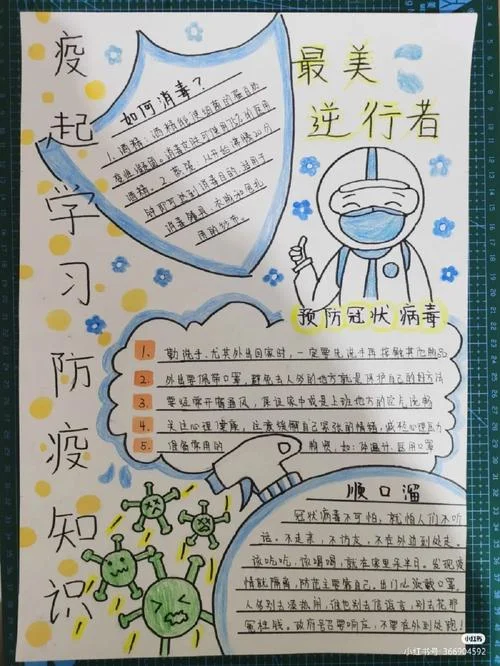 疫
起
学
习
防
疫
知
识
如何消毒?
1.酒精:酒精能使细菌的蛋白质
变性凝固。消毒皮肤可使用75%的医用
酒精。2.蒸煮:从开始沸腾20分
钟即可达到消毒目的。适用于
消毒餐具、衣物和
最美
逆行者
预防冠状病毒
1. 勤洗手、尤其外出回家时,一定要先洗手再接触其他物品
2. 外出要佩带口罩,避免去人多的地方就是保护自己的好方法
3. 要经常开窗通风,保证家中或是上班地方的空气流畅
4. 关注心理健康,注意缓解自己紧张的情绪,减轻心理压力
5. 准备常用的 物资,如:体温计、医用口罩
顺口溜
冠状病毒不可怕,就怕人们不听
话。不走亲,不访友,不在外边到处走。
该吃吃,该喝喝,就在家里呆半月。发现疫
情就隔离,防范主要靠自己。出门必须戴口罩,
人多别去凑热闹,谁也别去信谣言,别去花那
冤枉钱。政府号召要响应,不要在外到处跑!
小红书
小红书号:366904592